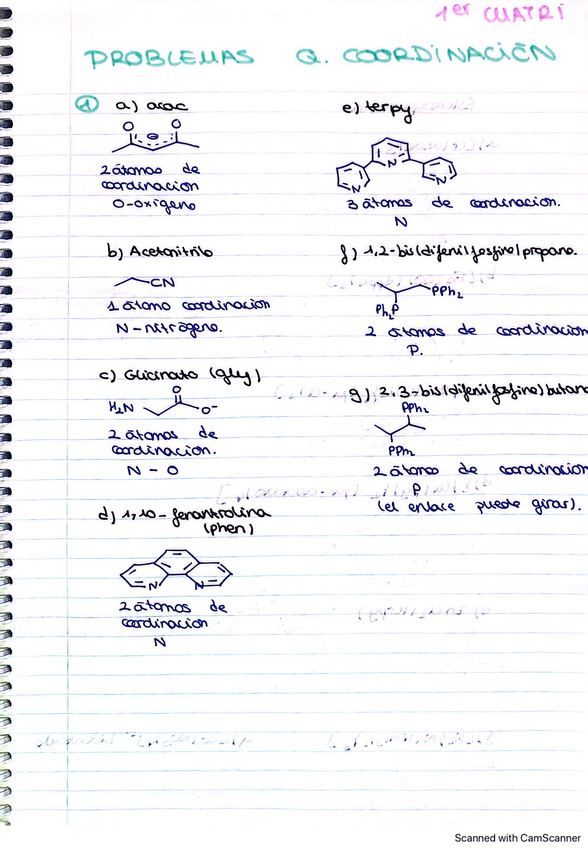 1er CUATRI
PROBLEMAS Q. COORDINACIÓN
① a) acac
O O
⊖
2 átomos de
coordinacion
O-oxígeno
b) Acetonitrilo
CN
1 átomo coordinación
N - nitrógeno.
c) Glicinato (gly)
H₂N O O-
2 átomos de
coordinacion.
N - O
d) 1,10 - fenantrolina
(phen)
N N
2 átomos de
coordinación
N
e) terpy
N N N
3 átomos de coordinación.
N
f) 1,2-bis(difenilfosfino)propano.
PPh₂
Ph₂P
2 átomos de coordinación
P.
g) 2,3-bis(difenilfosfino)butano
PPh₂
PPh₂
2 átomos de coordinación
P
(el enlace puede girar).
Scanned with CamScanner